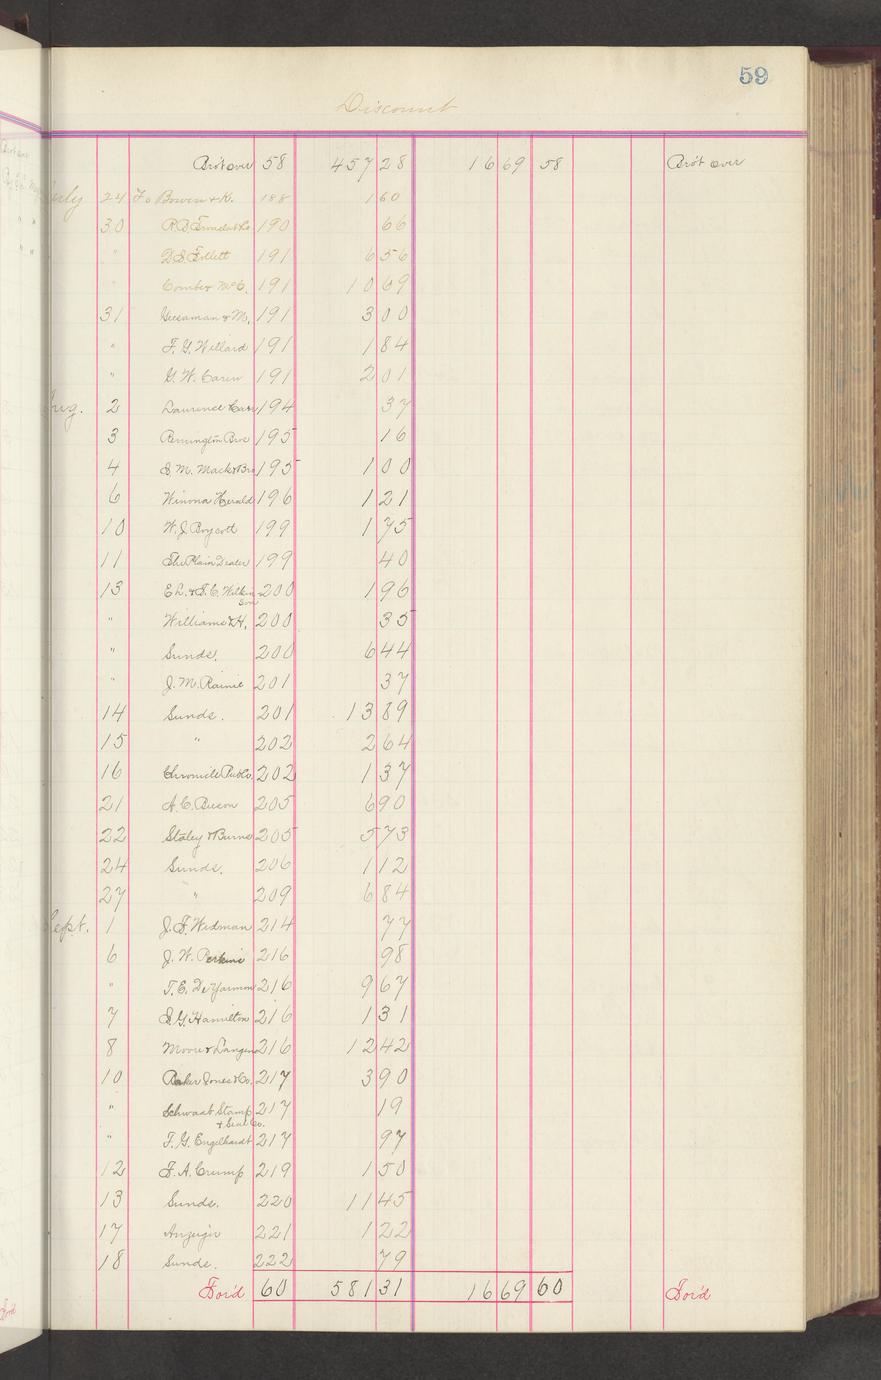 59
Discount
Bro't over 58 457 28 16 69 58 Bro't over
July 24 To Bowen & K. 188 1 60
30 190 66
" D.S. Follett 191 6 56
" 191 10 69
31 & M. 191 3 00
" F. G. Willard 191 1 84
" G. W. 191 2 01
Aug. 2 Laurence 194 37
3 Remington Bros 195 16
4 S. M. Mack & Bro 195 1 00
6 Winona Herald 196 1 21
10 W. J. Boycott 199 1 75
11 The Plain Dealer 199 40
13 E L. & S. C. Wilkin 200 1 96
son
" Williams & H. 200 35
" Sunds. 200 6 44
" J. M. Rainie 201 37
14 Sunds. 201 13 89
15 " 202 2 64
16 Chronicle Pub Co. 202 1 37
21 A. C. 205 6 90
22 Staley & Burns 205 5 73
24 Sunds. 206 1 12
27 " 209 6 84
Sept. 1 J. F. Widman 214 77
6 J. W. Perkins 216 98
" T. E. DeYarmon 216 9 67
7 S. G. Hamilton 216 1 31
8 Moore & 216 12 42
10 Baker Jones & Co. 217 3 90
" Schwaab Stamp 217 19
& Seal Co.
" F. G. Engelhardt 217 97
12 F. A. Crump 219 1 50
13 Sunds. 220 11 45
17 Anzeiger 221 1 22
18 Sunds. 222 79
For'd 60 581 31 16 69 60 For'd